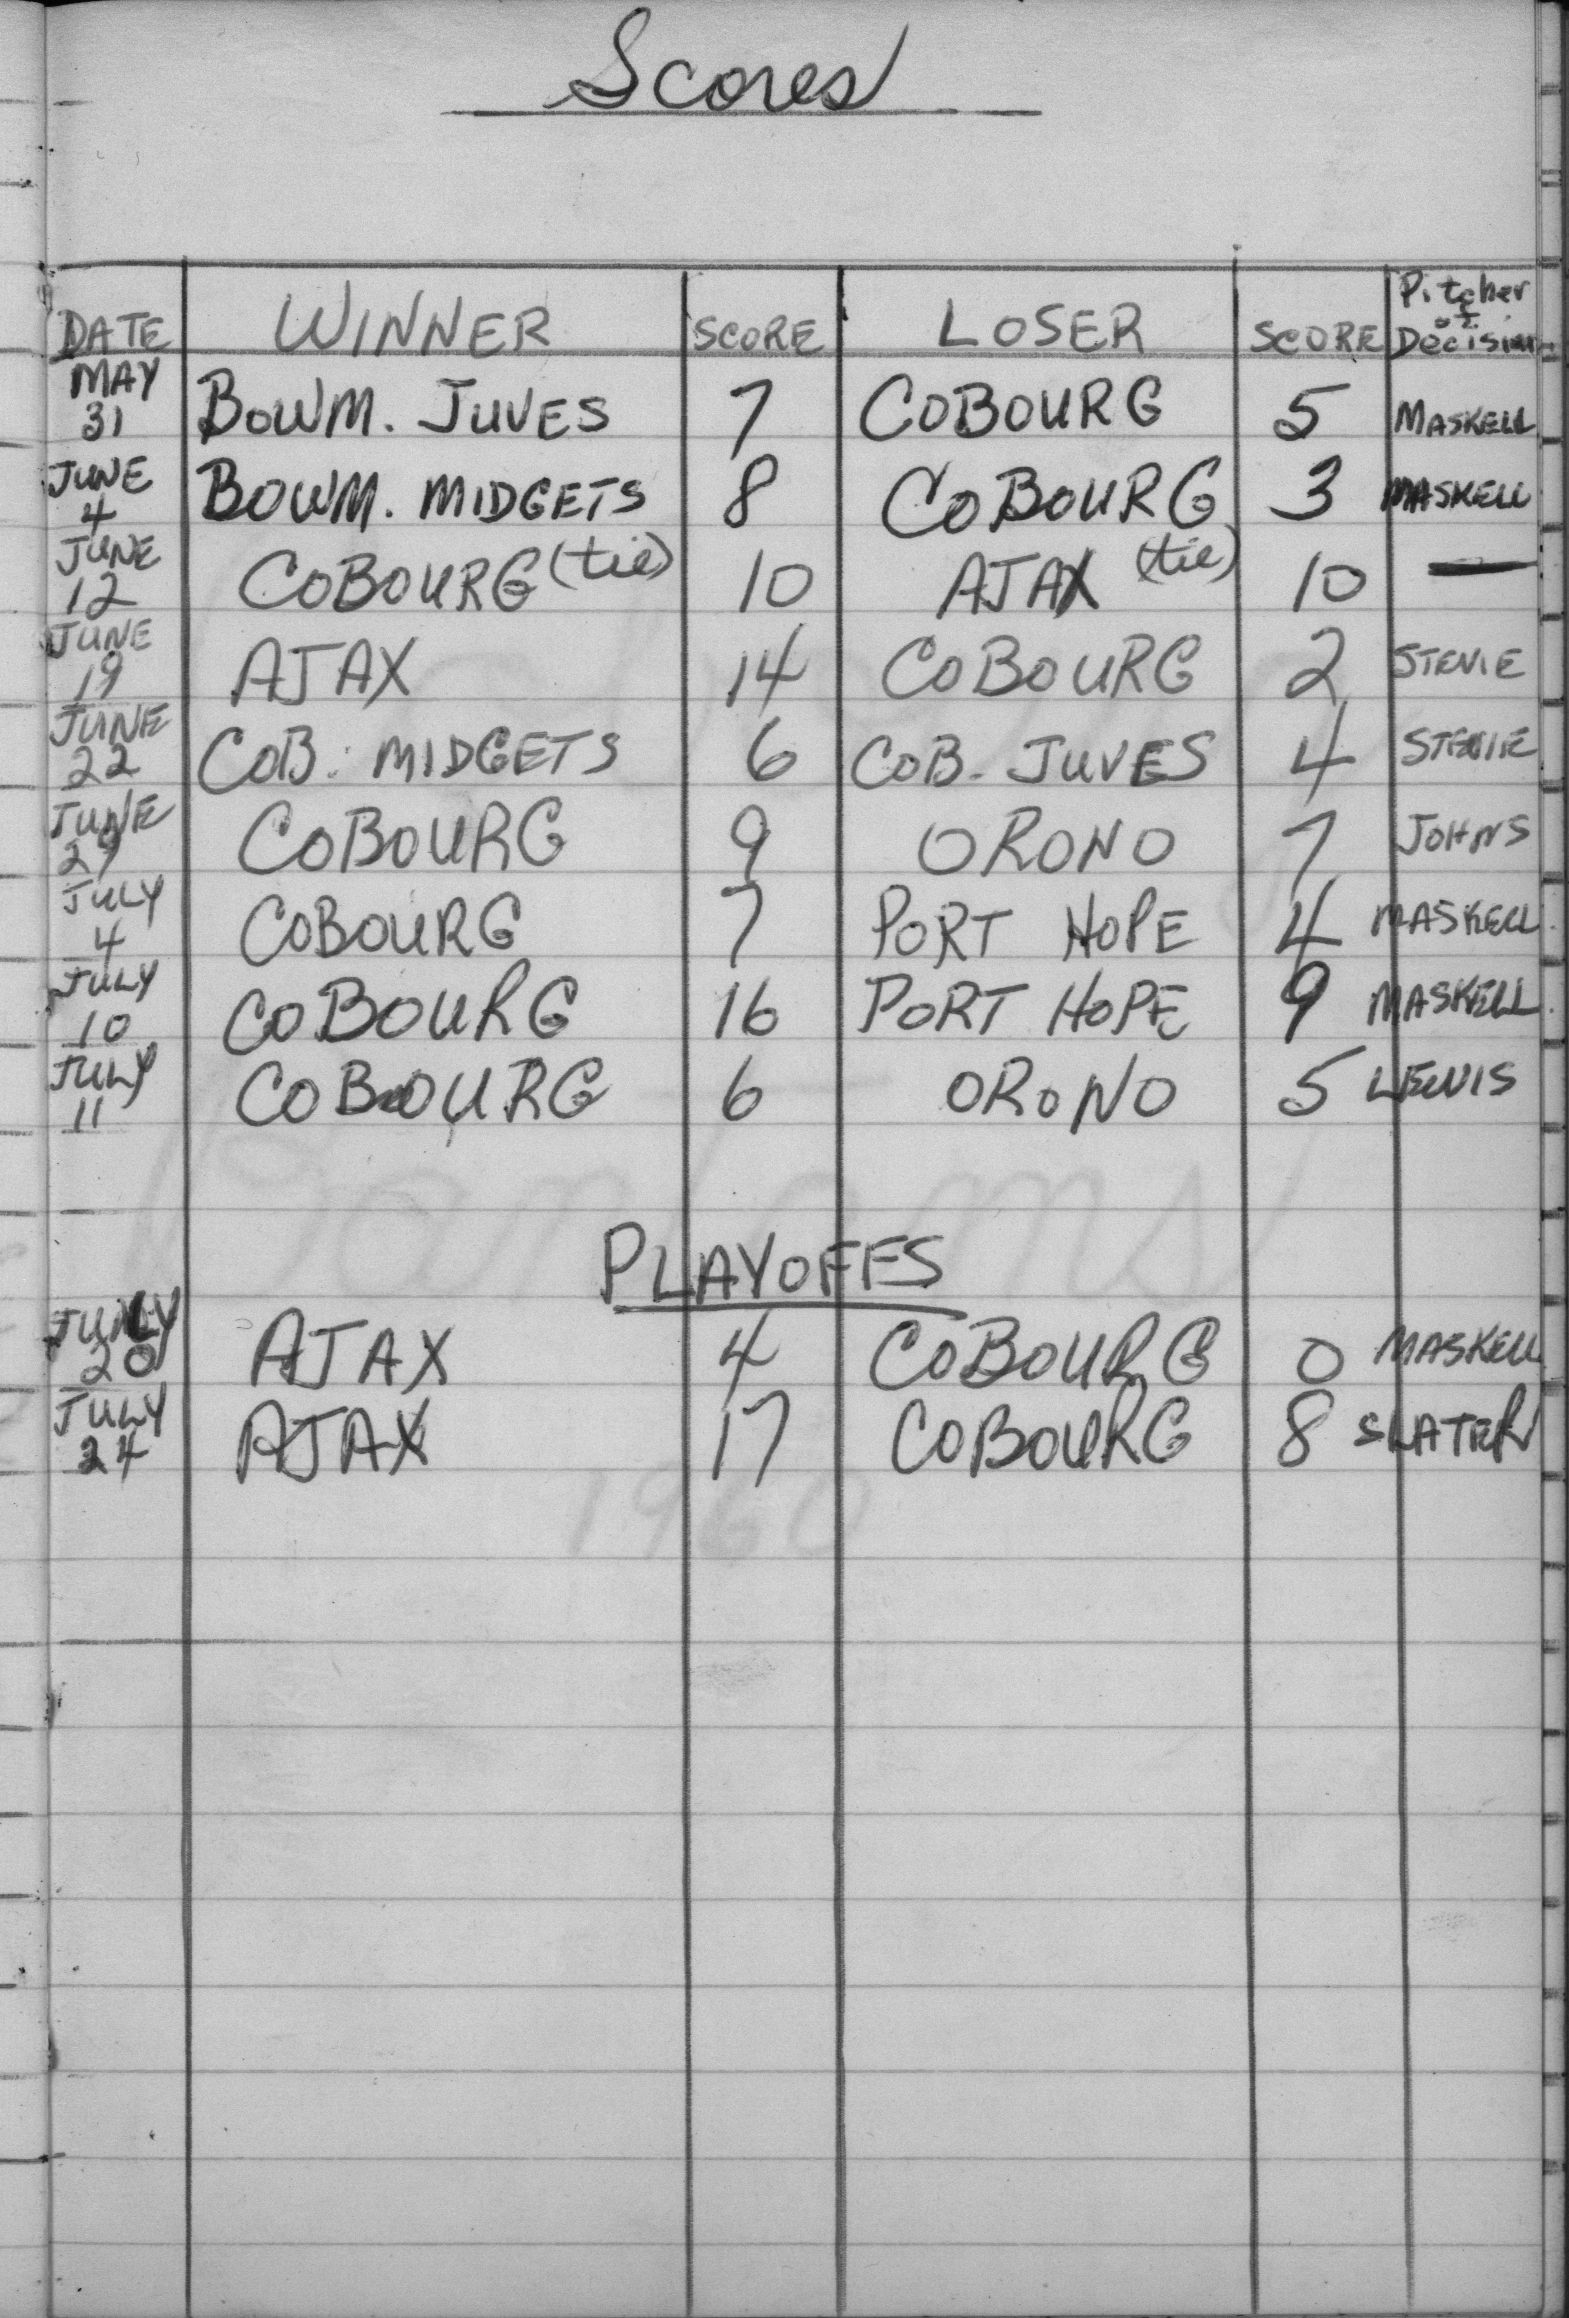 Scores
DATE WINNER SCORE LOSER SCORE Pitcher of Decision
MAY 31 BOWM. JUVES 7 COBOURG 5 MASKELL
JUNE 4 BOWM. MIDGETS 8 COBOURG 3 MASKELL
JUNE 12 COBOURG (tie) 10 AJAX (tie) 10 —
JUNE 19 AJAX 14 COBOURG 2 STEVIE
JUNE 22 COB. MIDGETS 6 COB. JUVES 4 STEVIE
JUNE 29 COBOURG 9 ORONO 7 JOHNS
JULY 4 COBOURG 7 PORT HOPE 4 MASKELL
JULY 10 COBOURG 16 PORT HOPE 9 MASKELL
JULY 11 COBOURG 6 ORONO 5 LEWIS
Bantams
PLAYOFFS
JULY 20 AJAX 4 COBOURG 0 MASKELL
JULY 24 AJAX 17 COBOURG 8 SLATER
1960